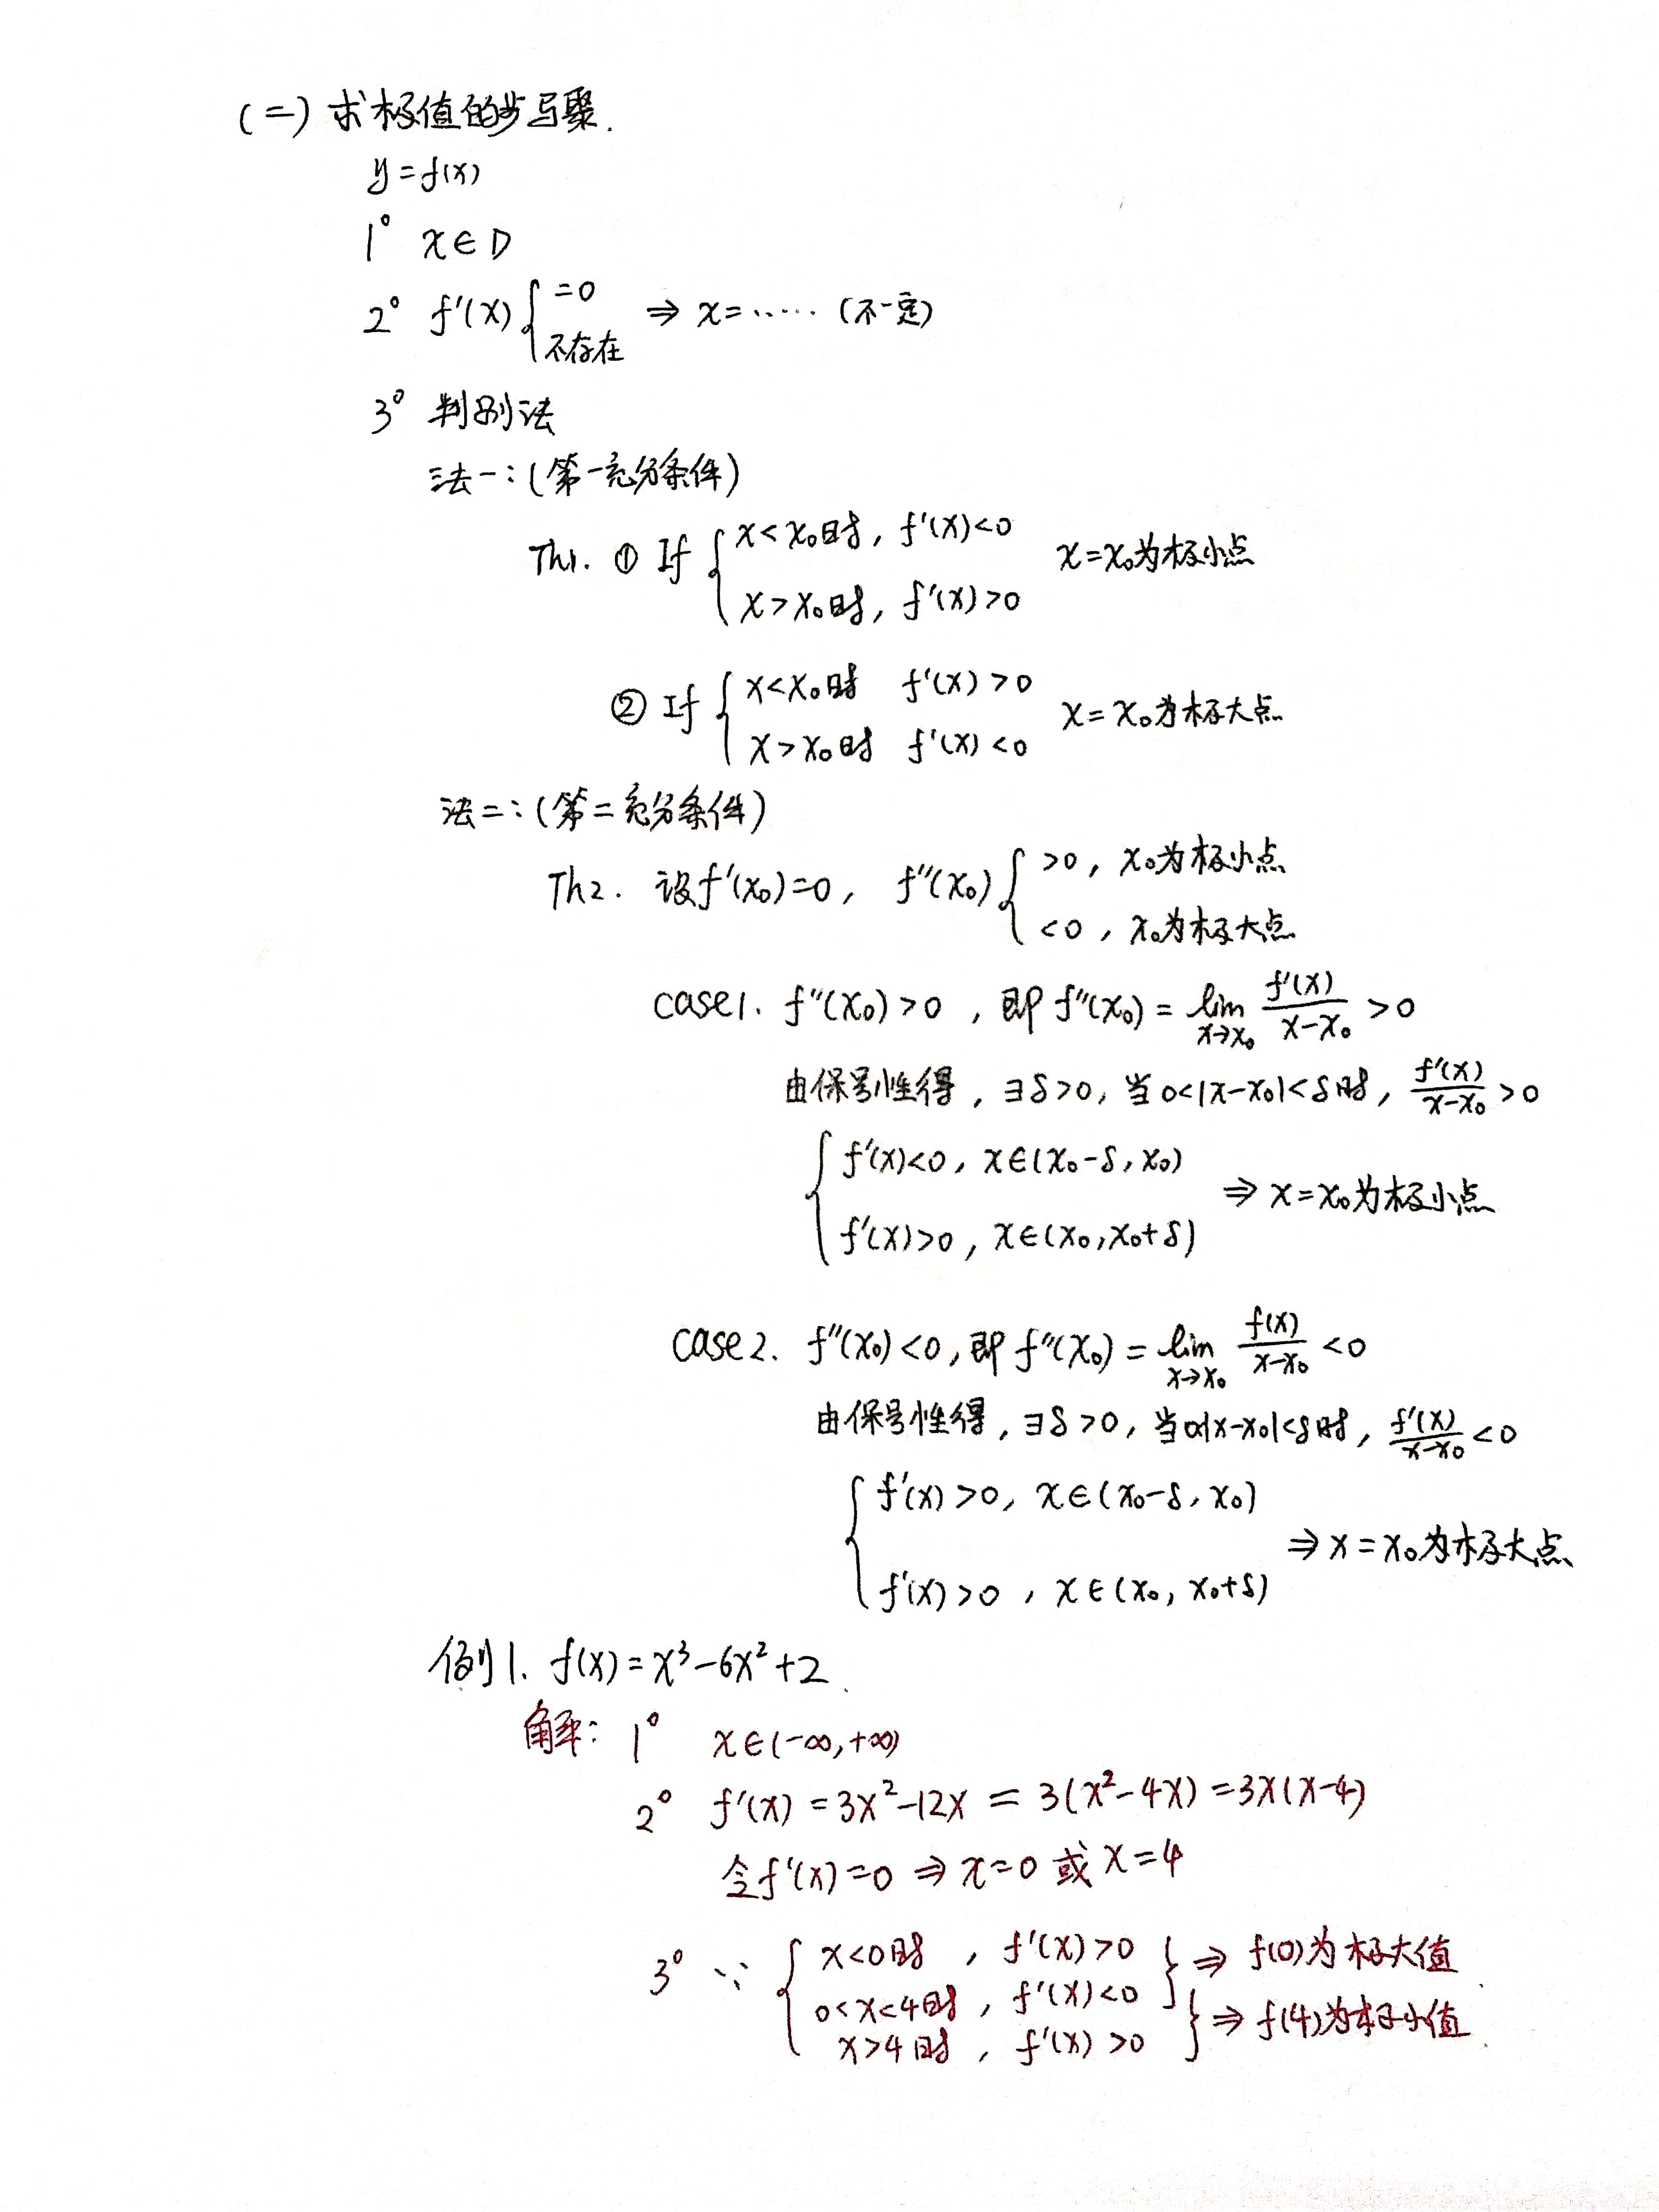 (二) 求极值的步骤.
y=f(x)
1° x∈D
2° f'(x) { =0 不存在 ⇒ x=…… (不一定)
3° 判别法
法一:(第一充分条件)
Th1. ① If { x<x₀时, f'(x)<0
x>x₀时, f'(x)>0 x=x₀为极小点
② If { x<x₀时 f'(x)>0
x>x₀时 f'(x)<0 x=x₀为极大点
法二:(第二充分条件)
Th2. 设f'(x₀)=0, f''(x₀) { >0, x₀为极小点
<0, x₀为极大点
case1. f''(x₀)>0, 即 f''(x₀)=lim_{x→x₀} f'(x)/(x-x₀) >0
由保号性得, ∃δ>0, 当0<|x-x₀|<δ时, f'(x)/(x-x₀) >0
{ f'(x)<0, x∈(x₀-δ, x₀)
f'(x)>0, x∈(x₀, x₀+δ) ⇒ x=x₀为极小点
case2. f''(x₀)<0, 即 f''(x₀)=lim_{x→x₀} f(x)/(x-x₀) <0
由保号性得, ∃δ>0, 当0<|x-x₀|<δ时, f'(x)/(x-x₀) <0
{ f'(x)>0, x∈(x₀-δ, x₀)
f'(x)>0, x∈(x₀, x₀+δ) ⇒ x=x₀为极大点
例1. f(x)=x³-6x²+2.
解: 1° x∈(-∞,+∞)
2° f'(x)=3x²-12x=3(x²-4x)=3x(x-4)
令f'(x)=0 ⇒ x=0 或 x=4
3° ∵ { x<0时, f'(x)>0 } ⇒ f(0)为极大值
0<x<4时, f'(x)<0
x>4时, f'(x)>0 } ⇒ f(4)为极小值